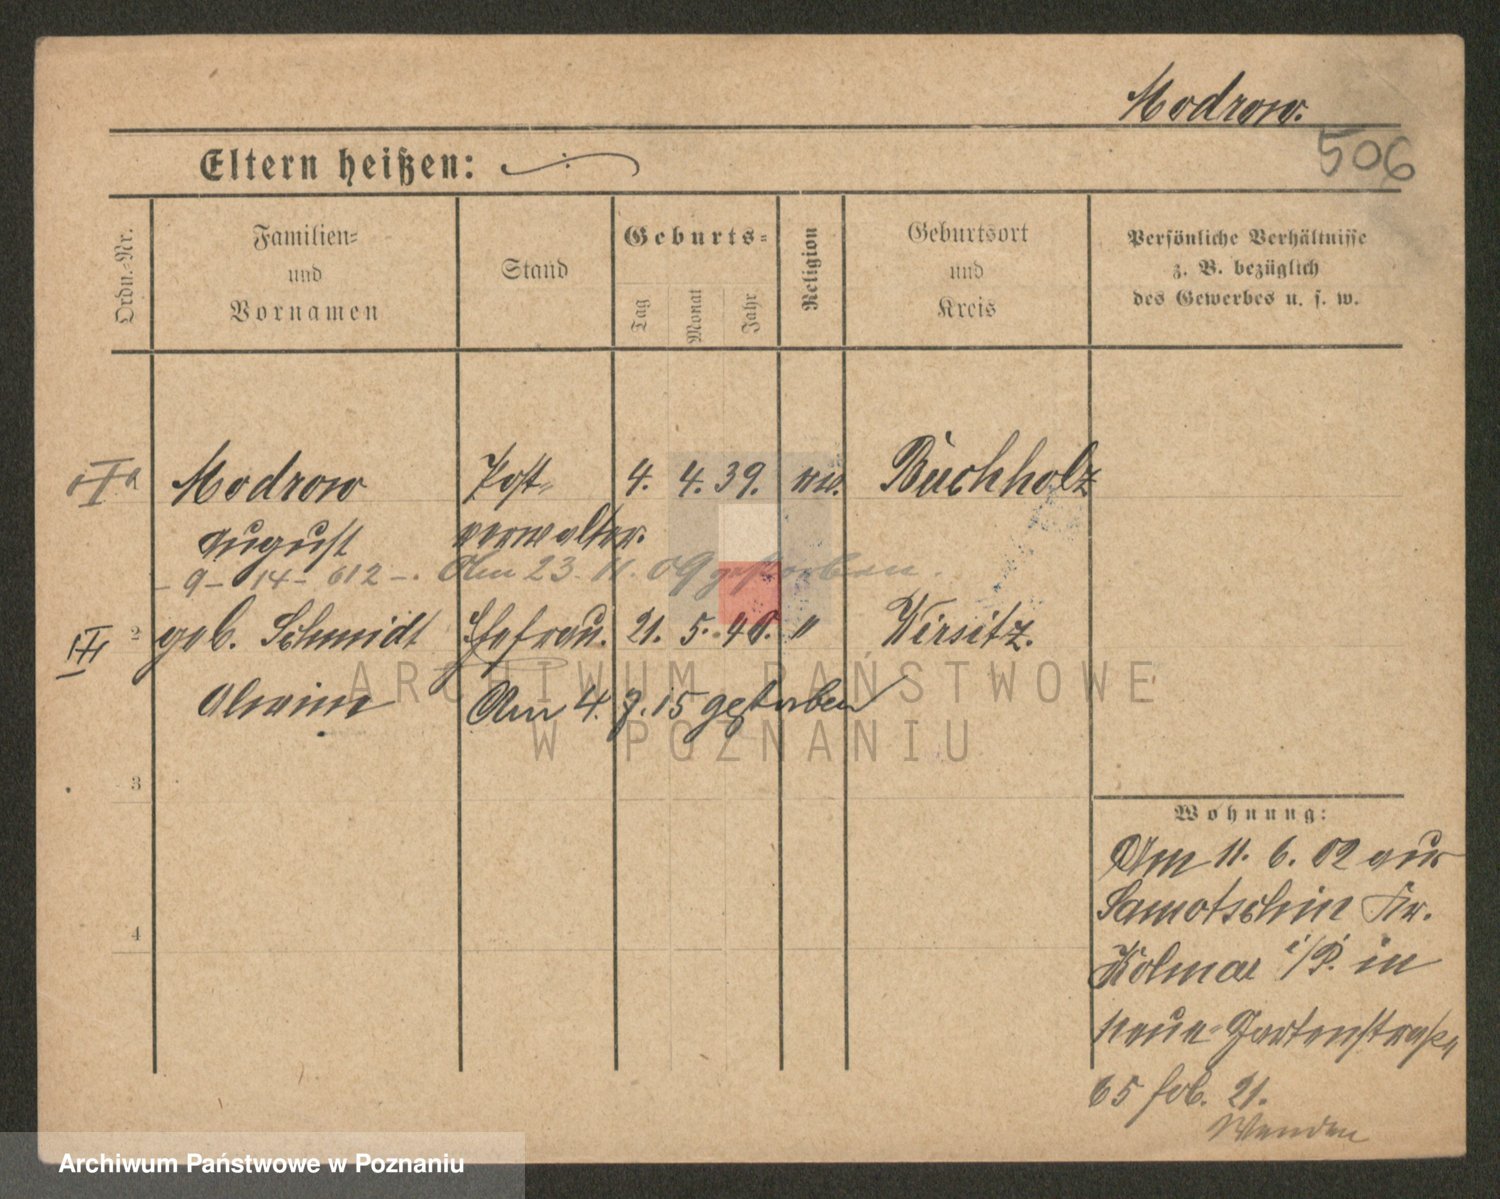 Modrow.
506
Eltern heißen:
Ordn.-Nr.
Familien-
und
Vornamen
Stand
Geburts-
Tag
Monat
Jahr
Religion
Geburtsort
und
Kreis
Persönliche Verhältnisse
z. B. bezüglich
des Gewerbes u. s. w.
Modrow Post- 4. 4. 39. ev. Buchholz
August verwalter.
- 9 - 14 - 612 -. Am 23. 11. 09 gestorben.
2 geb. Schmidt Ehefrau. 21. 5. 40. " Wirsitz.
Alwine Am 4. 7. 15 gestorben
3
4
Wohnung:
Am 11. 6. 02 aus
Samotschin Kr.
Kolmar i/P. in
Neue Gartenstraße
65 21.
Wenden
ARCHIWUM PAŃSTWOWE
W POZNANIU
Archiwum Państwowe w Poznaniu